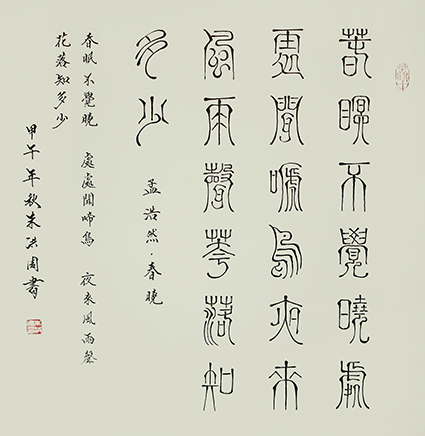 春眠不覺曉處
處聞啼鳥夜來
風雨聲花落知
多少
孟浩然·春曉
春眠不覺曉 處處聞啼鳥 夜来風雨聲
花落知多少
甲午年秋 洪 書